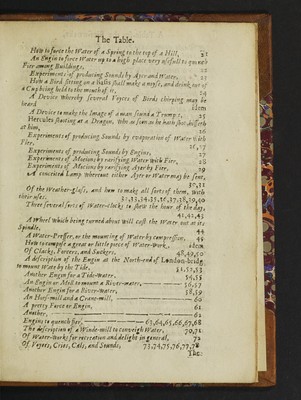 The Table.
How to force the Water of a Spring to the top of a Hill, 21
An Engin to force Water up to a high place very usefull to quench
Fire among Buildings, 22
Experiments of producing Sounds by Ayre and Water, 23
How a Bird sitting on a basis shall make a noyse, and drink out of
a Cup being held to the mouth of it, 24
A Device whereby severall Voyces of Birds chirping may be
heard idem
A Device to make the Image of a man sound a Trumpet, 25
Hercules shooting at a Dragon, who as soon as he hath shot, hisseth
at him, 26
Experiments of producing Sounds by evaporation of Water with
Fire, 26,27
Experiments of producing Sounds by Engine, 27
Experiments of Motions by rarifying Water with Fire, 28
Experiments of Motions by rarifying Ayre by Fire, 29
A conceited Lamp whereout either Ayre or Water may be sent,
30,31
Of the Weather-Glass, and how to make all sorts of them, with
their uses. 32,33,34,35,36,37,38,39,40
Three severall sorts of Water-clocks to shew the hour of the day,
41,42,43
A Wheel which being turned about will cast the Water out at its
Spindle, 44
A Water-Presser, or the mounting of Water by compression, 44
How to compose a great or little piece of Water-Work, idem.
Of Clacks, Forcers, and Suckers, 48,49,50
A description of the Engin at the North-end of London-bridg
to mount Water by the Tide, 51,52,53
Another Engin for a Tide-water, 54,55
An Engin or Mill to mount a River-water, 56,57
Another Engin for a River-water, 58,59
An Horse-mill and a Crane-mill, 60
A pretty Force or Engin, 61
Another, 62
Engins to quench fier, 63,64,65,66,67,68
The description of a Winde-mill to conveigh Water, 70,71
Of Water-works for recreation and delight in general, 72
Of Voyces, Cries, Cals, and Sounds, 73,74,75,76,77,78
The